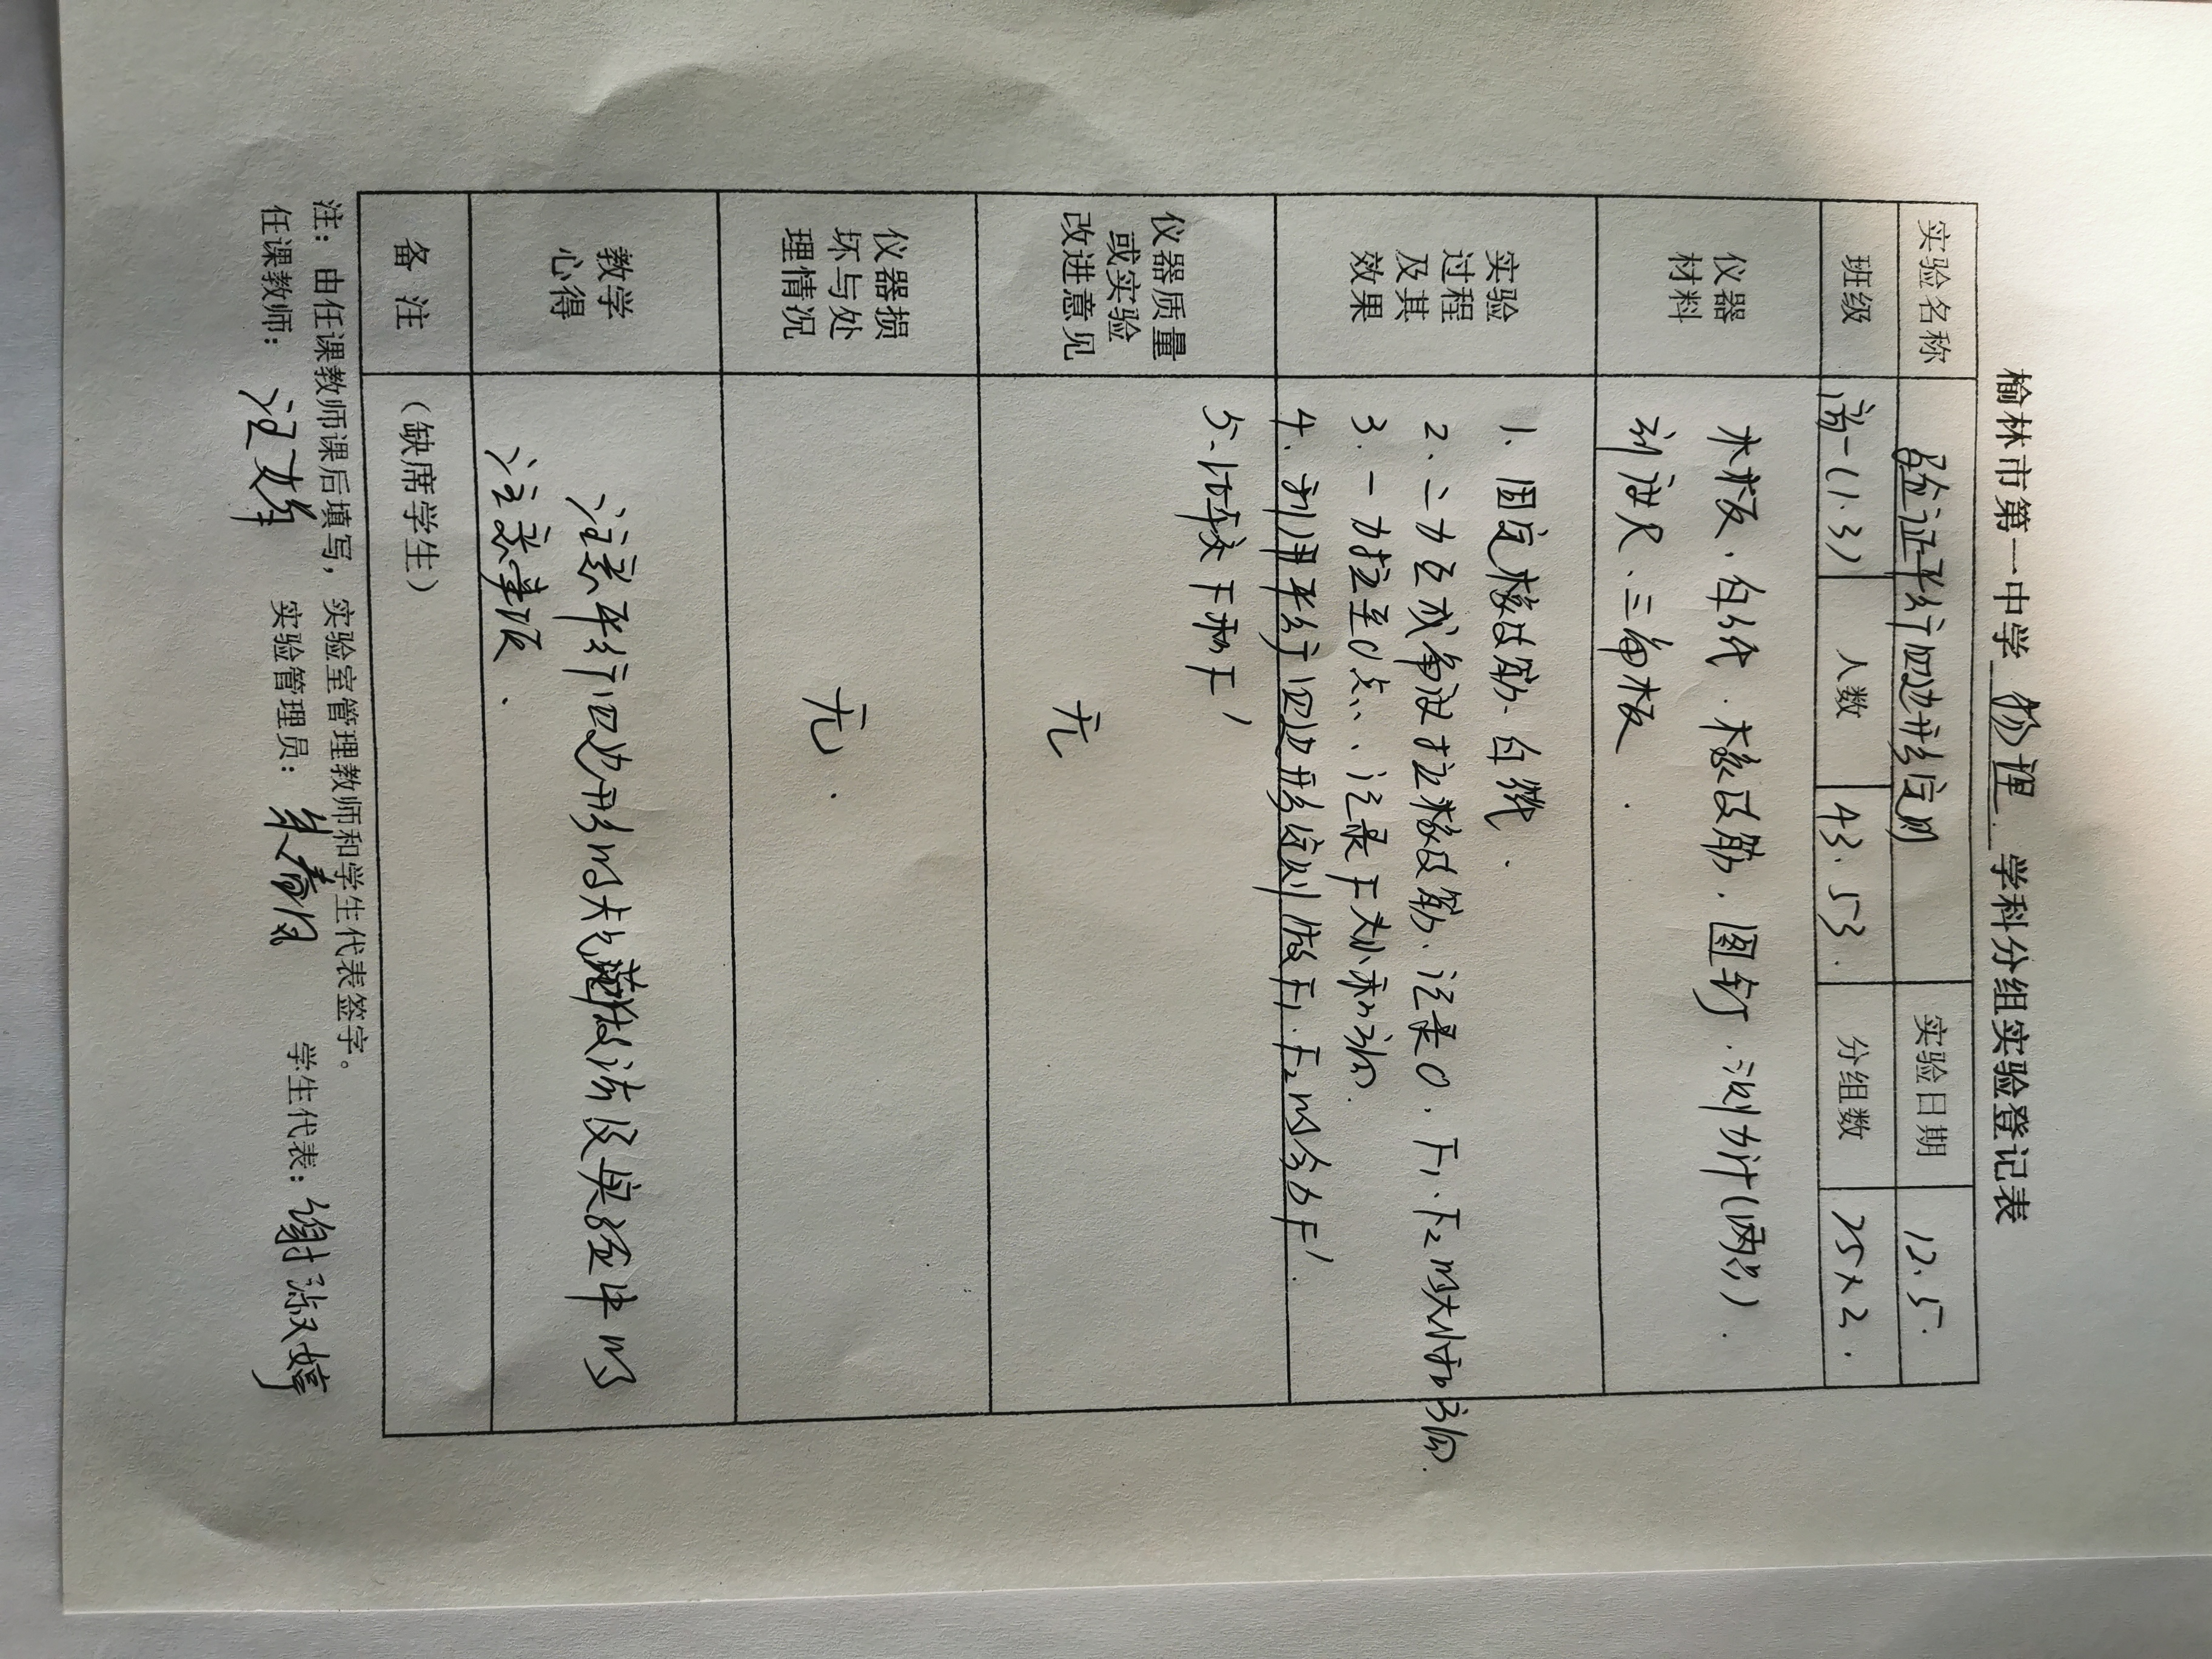 榆林市第一中学 物理 学科分组实验登记表
实验名称 验证平行四边形定则 实验日期 12.5.
班级 高一(1.3) 人数 43.53. 分组数 25×2.
仪器材料 木板.白纸.橡皮筋.图钉.测力计(两个).
刻度尺.三角板.
实验过程及其效果 1.固定橡皮筋.白纸.
2.二力互成角度拉橡皮筋.记录O.F₁.F₂的大小和方向.
3.一力拉至O点、记录F大小和方向.
4.利用平行四边形定则做F₁.F₂的合力F'.
5.比较F和F'
仪器质量或实验改进意见 无
仪器损坏与处理情况 无.
教学心得 注意平行四边形的做法及实验中的
注意事项.
备注 (缺席学生)
注：由任课教师课后填写，实验室管理教师和学生代表签字。
任课教师： 实验管理员： 学生代表：谢淑婷